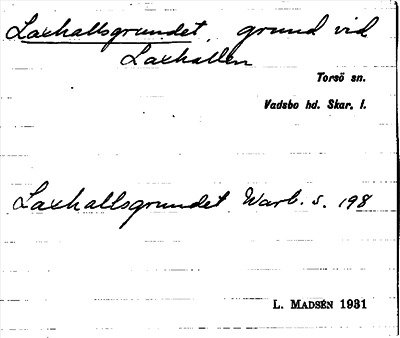 Laxhallsgrundet, grund vid
Laxhallen
Torsö sn.
Vadsbo hd. Skar. l.
Laxhallsgrundet Warb. s. 198
L. MADSÉN 1931